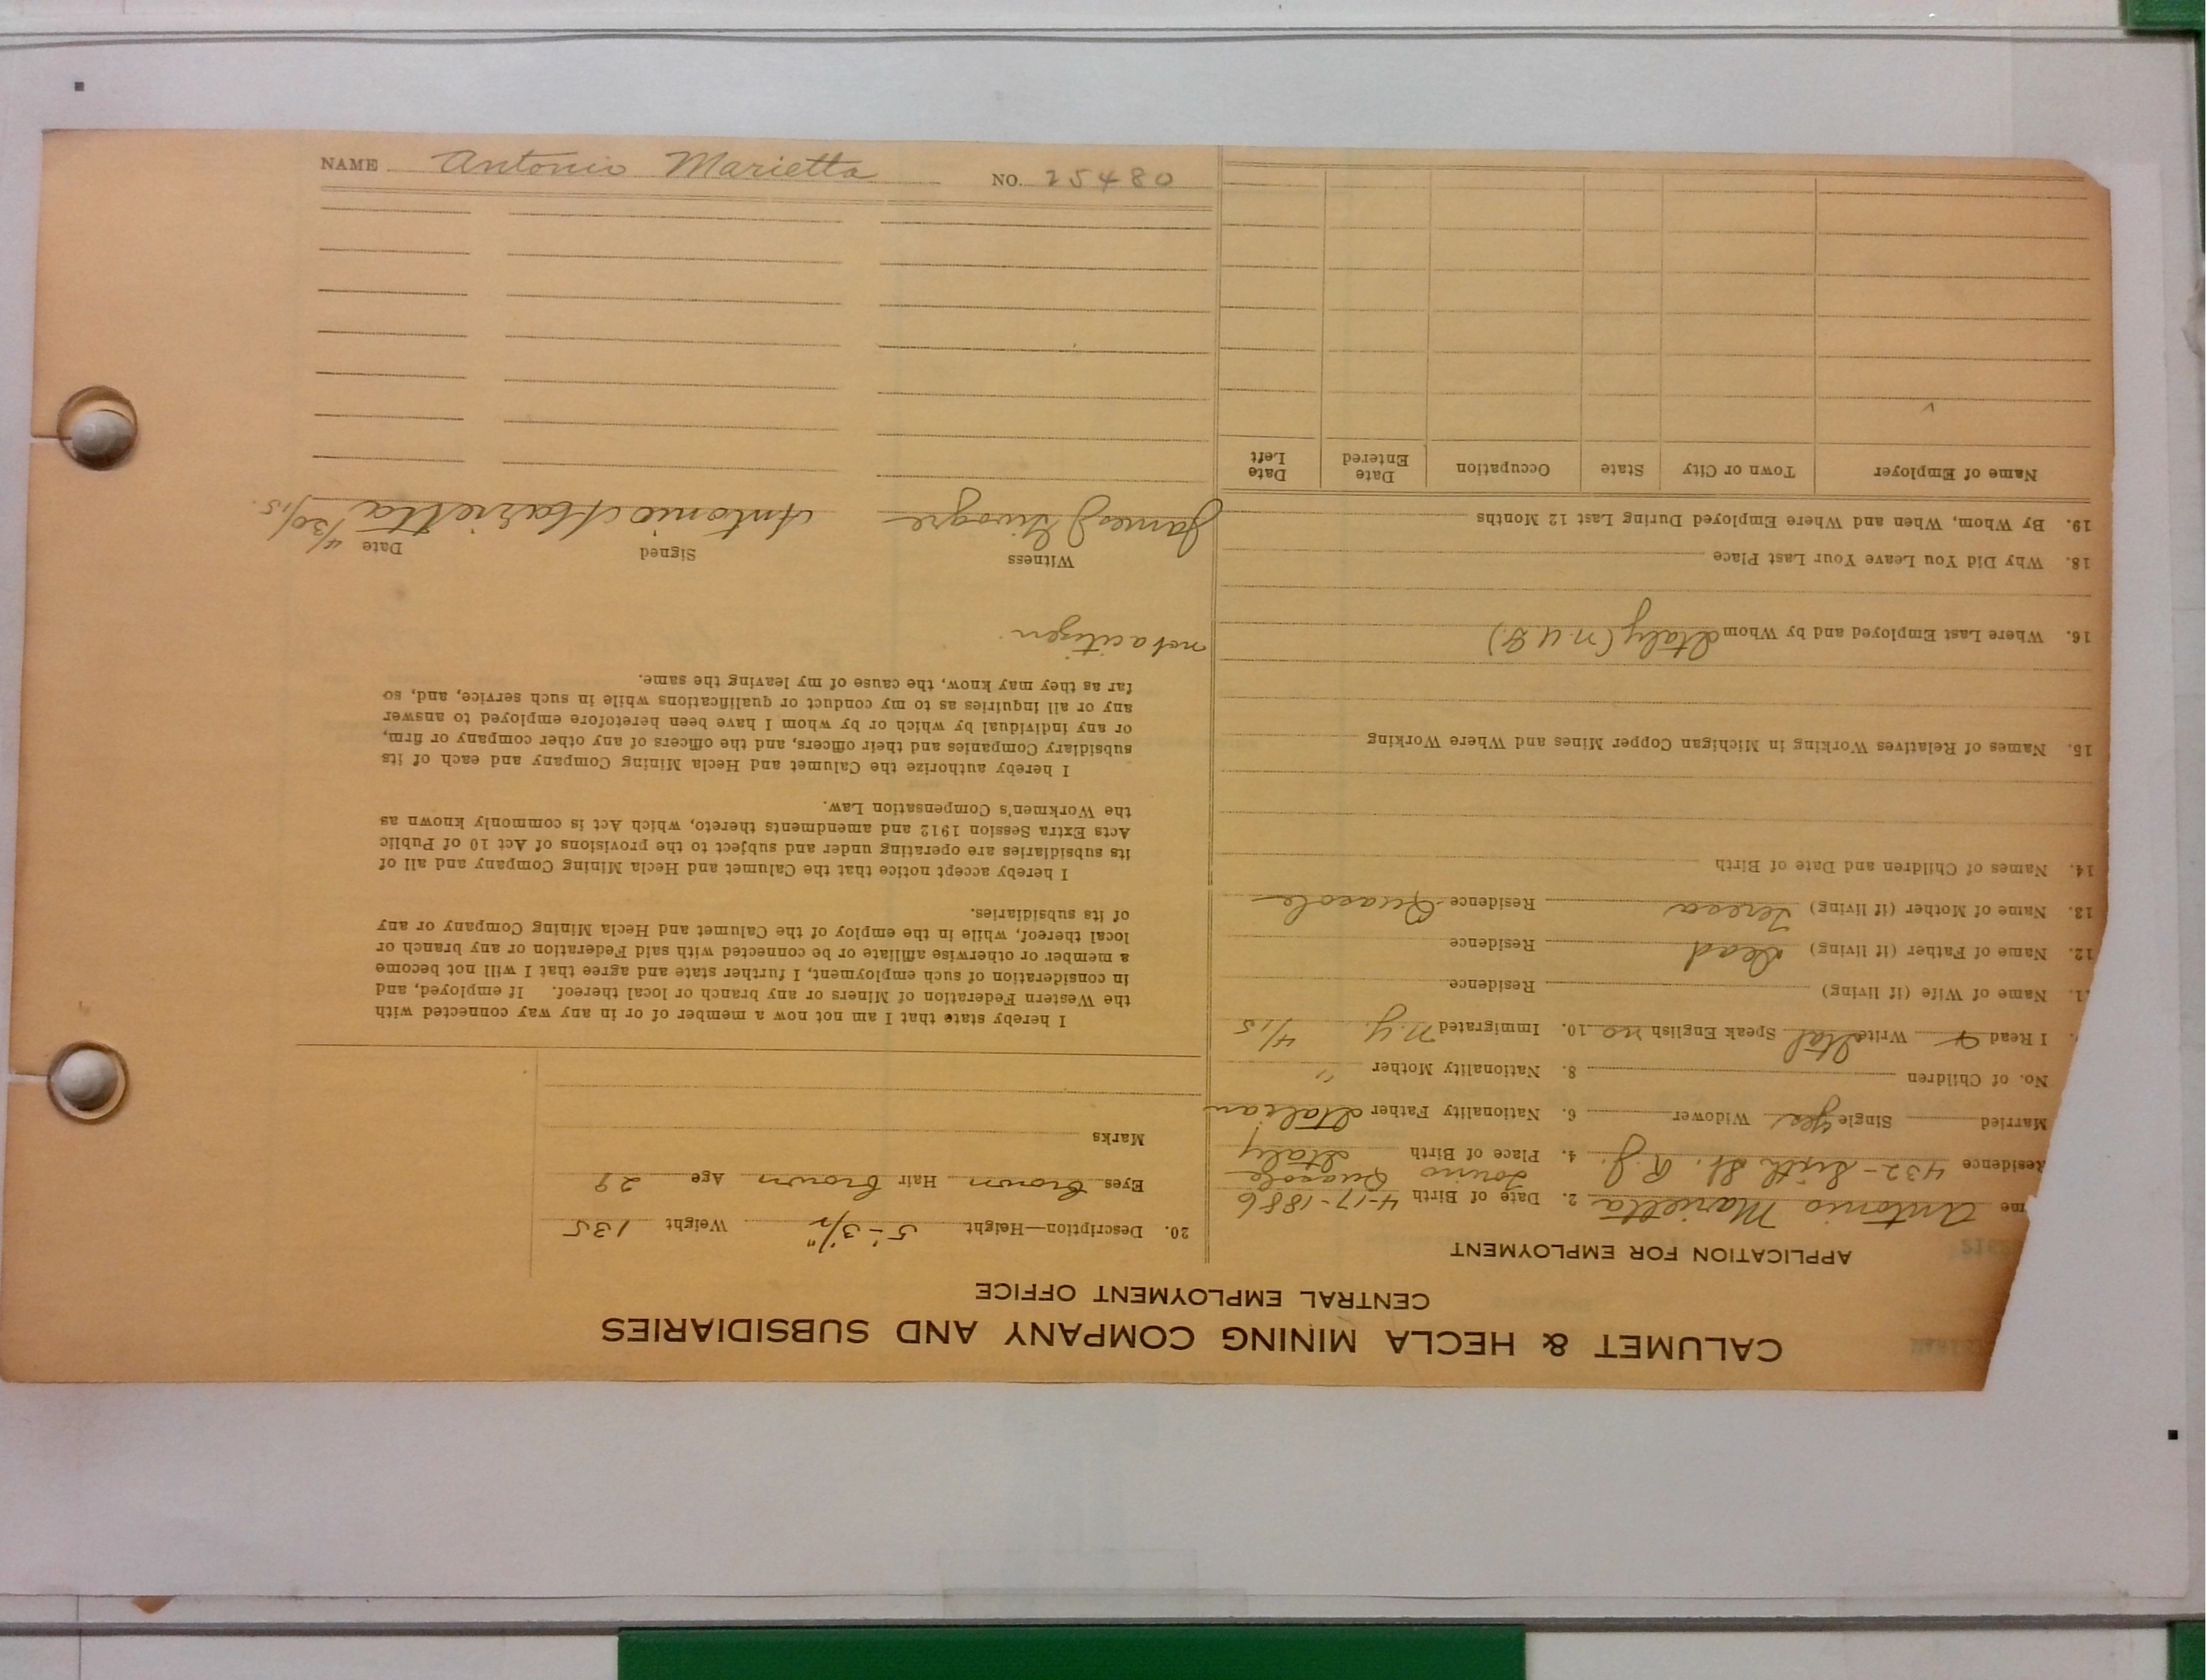 CALUMET & HECLA MINING COMPANY AND SUBSIDIARIES
CENTRAL EMPLOYMENT OFFICE
APPLICATION FOR EMPLOYMENT
me Antonio Marietta 2. Date of Birth 4-17-1886
Torino Quasolo
Residence 432-Sixth St. R.J. 4. Place of Birth Italy
Married Single Yes Widower 6. Nationality Father Italian
No. of Children 8. Nationality Mother "
I Read & Write Ital Speak English no 10. Immigrated N.Y. 4/15
1. Name of Wife (if living) Residence
12. Name of Father (if living) Dead Residence
13. Name of Mother (if living) Teresa Residence Quasolo
14. Names of Children and Date of Birth
15. Names of Relatives Working in Michigan Copper Mines and Where Working
16. Where Last Employed and by Whom Italy (N.U.S.)
18. Why Did You Leave Your Last Place
19. By Whom, When and Where Employed During Last 12 Months
Name of Employer Town or City State Occupation Date Entered Date Left
20. Description—Height 5'-3½" Weight 135
Eyes Brown Hair Brown Age 29
Marks
I hereby state that I am not now a member of or in any way connected with
the Western Federation of Miners or any branch or local thereof. If employed, and
in consideration of such employment, I further state and agree that I will not become
a member or otherwise affiliate or be connected with said Federation or any branch or
local thereof, while in the employ of the Calumet and Hecla Mining Company or any
of its subsidiaries.
I hereby accept notice that the Calumet and Hecla Mining Company and all of
its subsidiaries are operating under and subject to the provisions of Act 10 of Public
Acts Extra Session 1912 and amendments thereto, which Act is commonly known as
the Workmen's Compensation Law.
I hereby authorize the Calumet and Hecla Mining Company and each of its
subsidiary Companies and their officers, and the officers of any other company or firm,
or any individual by which or by whom I have been heretofore employed to answer
any or all inquiries as to my conduct or qualifications while in such service, and, so
far as they may know, the cause of my leaving the same.
not a citizen
Witness Signed Date
James J Antonio Marietta 4/30/15.
NAME Antonio Marietta NO. 25480